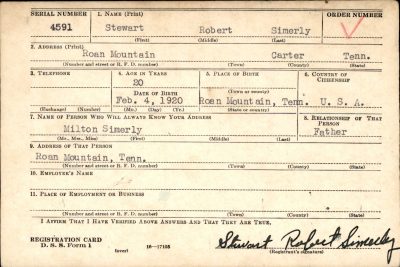 SERIAL NUMBER 1. NAME (Print) ORDER NUMBER
4591 Stewart Robert Simerly
(First) (Middle) (Last)
2. ADDRESS (Print)
Roan Mountain Carter Tenn.
(Number and street or R. F. D. number) (Town) (County) (State)
3. TELEPHONE 4. AGE IN YEARS 5. PLACE OF BIRTH 6. COUNTRY OF CITIZENSHIP
20
DATE OF BIRTH (Town or county)
Feb. 4, 1920 Roan Mountain, Tenn. U. S. A.
(Exchange) (Number) (Mo.) (Day) (Yr.) (State or country)
7. NAME OF PERSON WHO WILL ALWAYS KNOW YOUR ADDRESS 8. RELATIONSHIP OF THAT PERSON
Milton Simerly Father
(Mr., Mrs., Miss) (First) (Middle) (Last)
9. ADDRESS OF THAT PERSON
Roan Mountain, Tenn.
(Number and street or R. F. D. number) (Town) (County) (State)
10. EMPLOYER'S NAME
11. PLACE OF EMPLOYMENT OR BUSINESS
(Number and street or R. F. D. number) (Town) (County) (State)
I AFFIRM THAT I HAVE VERIFIED ABOVE ANSWERS AND THAT THEY ARE TRUE.
REGISTRATION CARD
D. S. S. Form 1 (over) 16—17105 Stewart Robert Simerley
(Registrant's signature)